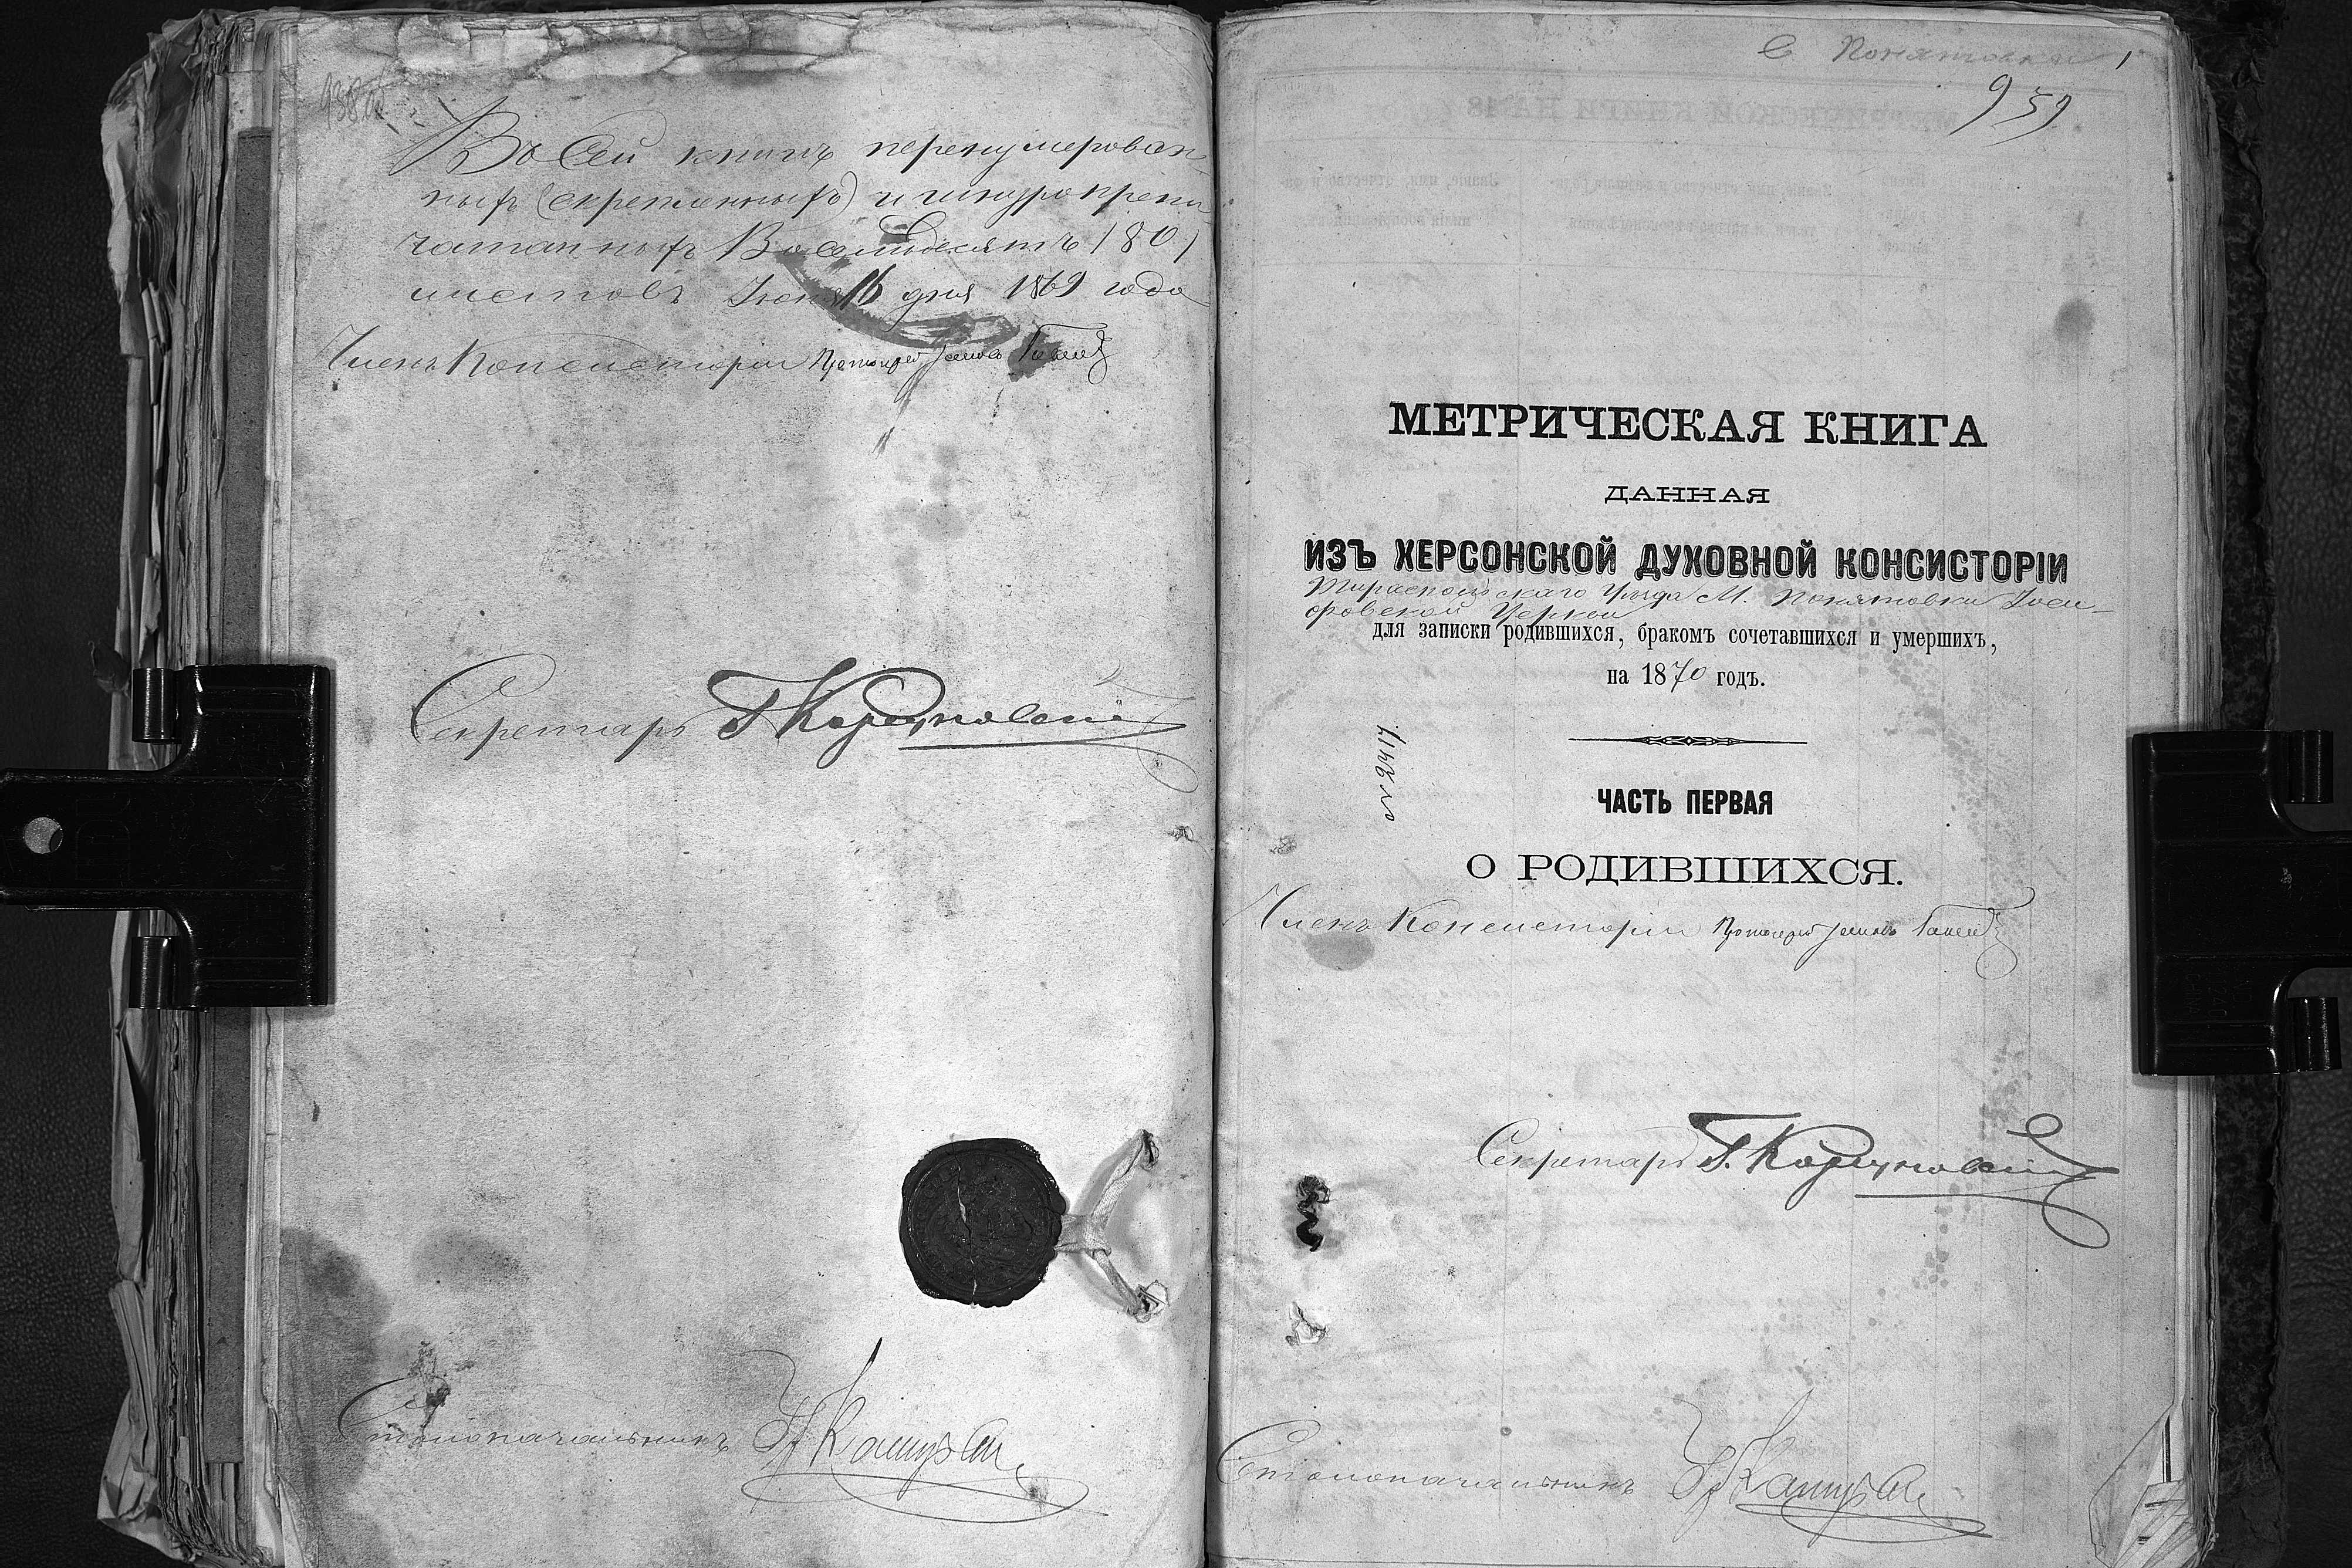 938 об
Въ сей книгѣ перенумерован-
ныхъ (скрепленныхъ) и шнуропрепе-
чатанныхъ Восемьдесятъ (80)
листовъ Іюня 16 дня 1869 года
Членъ Консисторіи Протоіерей
Секретарь Г Коргуновскій
Столоначальникъ
С Понятовка 1
959
МЕТРИЧЕСКАЯ КНИГА
ДАННАЯ
ИЗЪ ХЕРСОНСКОЙ ДУХОВНОЙ КОНСИСТОРІИ
Тираспольскаго Уѣзда М. Понятовки Іоси-
фовской Церкви
для записки родившихся, бракомъ сочетавшихся и умершихъ,
на 1870 годъ.
ЧАСТЬ ПЕРВАЯ
О РОДИВШИХСЯ.
Членъ Консисторіи Протоіерей
Секретарь Г. Коргуновскій
Столоначальникъ